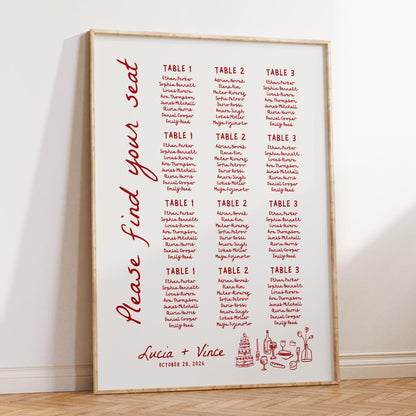 Please find your seat
TABLE 1
Ethan Parker
Sophia Bennett
Lucas Rivera
Ava Thompson
James Mitchell
Olivia Harris
Daniel Cooper
Emily Reed
TABLE 2
Adrian Novak
Elena Kim
Mateo Alvarez
Sofia Petrov
Dario Rossi
Amara Singh
Lukas Möller
Maya Fujimoto
TABLE 3
Ethan Parker
Sophia Bennett
Lucas Rivera
Ava Thompson
James Mitchell
Olivia Harris
Daniel Cooper
Emily Reed
TABLE 1
Ethan Parker
Sophia Bennett
Lucas Rivera
Ava Thompson
James Mitchell
Olivia Harris
Daniel Cooper
Emily Reed
TABLE 2
Adrian Novak
Elena Kim
Mateo Alvarez
Sofia Petrov
Dario Rossi
Amara Singh
Lukas Möller
Maya Fujimoto
TABLE 3
Ethan Parker
Sophia Bennett
Lucas Rivera
Ava Thompson
James Mitchell
Olivia Harris
Daniel Cooper
Emily Reed
TABLE 1
Ethan Parker
Sophia Bennett
Lucas Rivera
Ava Thompson
James Mitchell
Olivia Harris
Daniel Cooper
Emily Reed
TABLE 2
Adrian Novak
Elena Kim
Mateo Alvarez
Sofia Petrov
Dario Rossi
Amara Singh
Lukas Möller
Maya Fujimoto
TABLE 3
Ethan Parker
Sophia Bennett
Lucas Rivera
Ava Thompson
James Mitchell
Olivia Harris
Daniel Cooper
Emily Reed
TABLE 1
Ethan Parker
Sophia Bennett
Lucas Rivera
Ava Thompson
James Mitchell
Olivia Harris
Daniel Cooper
Emily Reed
TABLE 2
Adrian Novak
Elena Kim
Mateo Alvarez
Sofia Petrov
Dario Rossi
Amara Singh
Lukas Möller
Maya Fujimoto
TABLE 3
Ethan Parker
Sophia Bennett
Lucas Rivera
Ava Thompson
James Mitchell
Olivia Harris
Daniel Cooper
Emily Reed
Lucia + Vince
OCTOBER 28, 2026